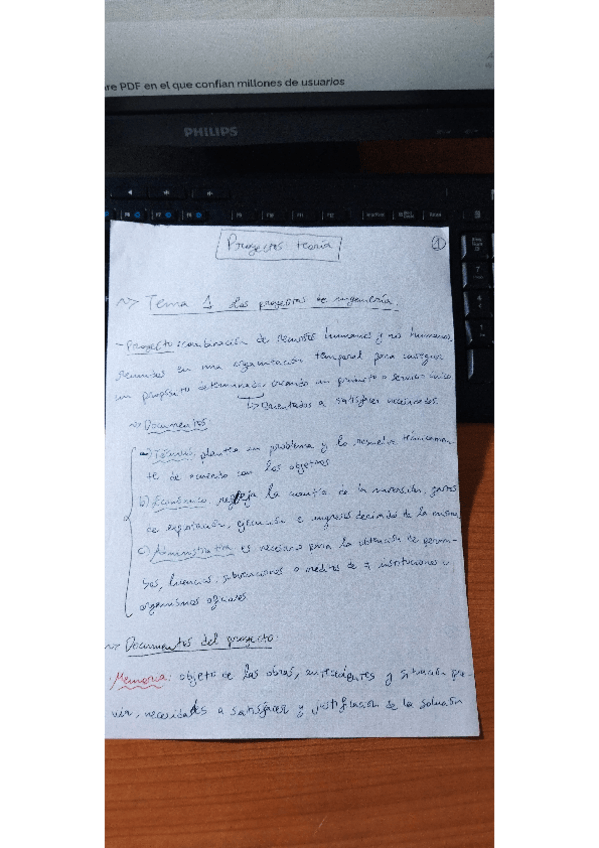 re PDF en el que confian millones de usuarios
PHILIPS
Proyectos teoría
1
~> Tema 1 Los proyectos de ingeniería.
- Proyecto: combinación de recursos humanos y no humanos,
reunidos en una organización temporal para conseguir
un propósito determinado, creando un producto o servicio único.
↳ Orientados a satisfacer necesidades.
~> Documentos
a) Técnico, plantea un problema y lo resuelve técnicamen-
te de acuerdo con los objetivos
b) Económico, refleja la cuantía de la inversión, gastos
de explotación, ejecución e ingresos derivados de la misma
c) Administrativo es necesario para la obtención de permi-
sos, licencias, subvenciones o créditos de ≠ instituciones u
organismos oficiales
~> Documentos del proyecto:
Memoria: objeto de las obras, antecedentes y situación pre-
via, necesidades a satisfacer y justificación de la solución